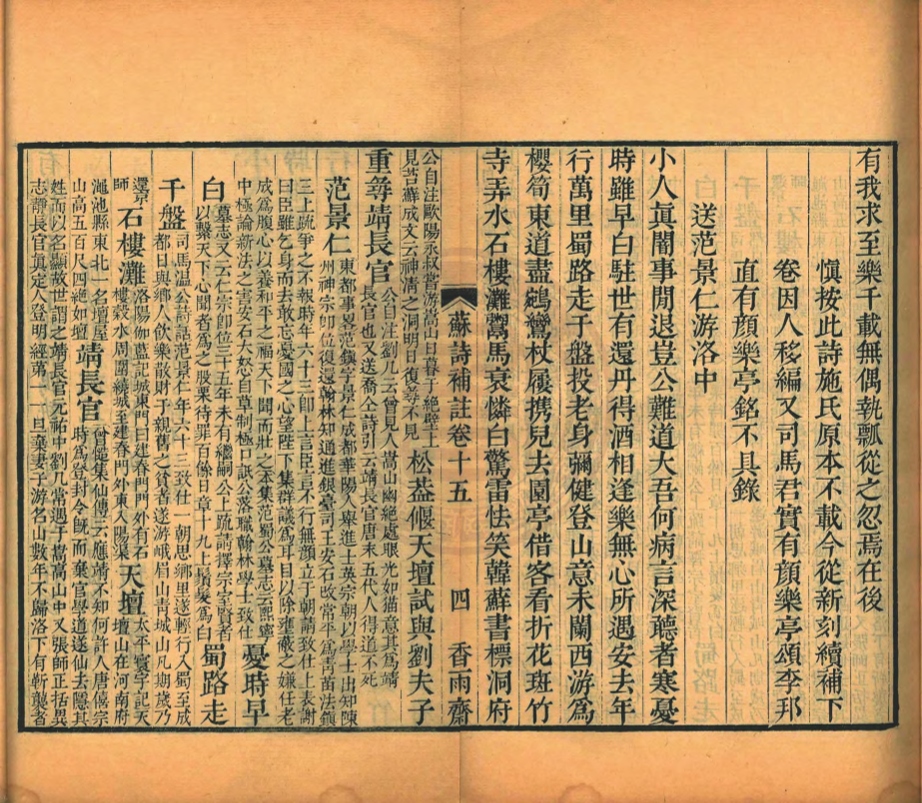 有我求至樂千載無偶執瓢從之忽焉在後
慎按此詩施氏原本不載今從新刻續補下
卷因人移編又司馬君實有顏樂亭頌李邦
直有顏樂亭銘不具錄
送范景仁游洛中
小人眞闇事閒退豈公難道大吾何病言深聽者寒憂
時雖早白駐世有還丹得酒相逢樂無心所遇安去年
行萬里蜀路走千盤投老身彌健登山意未闌西游爲
櫻筍東道盡鵷鸞杖屨携兒去園亭借客看折花斑竹
寺弄水石樓灘鬻馬衰憐白驚雷怯笑韓蘇書標洞府
蘇詩補註卷十五 四 香雨齋
松葢偃天壇試與劉夫子
公自注歐陽永叔嘗游嵩山日暮于絶壁上
見苔蘚成文云神淸之洞明日復尋不見
重尋靖長官
公自注劉几云曾見人嵩山幽絶處眼光如猫意其爲靖
長官也又送喬仝詩引云靖長官唐末五代人得道不死
范景仁
東都事畧范鎭字景仁成都華陽人舉進士英宗朝以學士出知陳
州神宗卽位復還翰林知通進銀臺司王安石改常平爲靑苗法鎭
三上疏爭之不報時年六十三卽上言臣言不行無顏立于朝請致仕上表謝
曰臣雖乞身而去敢忘憂國之心望陛下集群議爲耳目以除壅蔽之嫌任老
成爲腹心以養和平之福天下聞而壯之本集范蜀公墓志云熙寧
中極論新法之害安石大怒自草制極口詆公落職翰林學士致仕
憂時早
白
墓志又云仁宗卽位三十五年未有繼嗣公上疏請擇宗室賢者
以繫天下心聞者爲之股栗待罪百餘日章十九上鬚髮爲白
蜀路走
千盤
司馬温公詩話范景仁年六十二致仕一朝思鄉里遂輕行入蜀至成
都日與鄉人飲樂散財于親舊之貧者遂游峨眉山靑城山凡期歲乃
還京
師
石樓灘
洛陽伽藍記城東門曰建春門門外有石
樓縠水周圍繞城至建春門外東入陽渠
天壇
太平寰宇記天
壇山在河南府
澠池縣東北一名壇屋
山高五百尺四絶如壇
靖長官
曾慥集仙傳云應靖不知何許人唐僖宗
時爲登封令旣而棄官學道遂仙去隱其
姓而以名顯故世謂之靖長官元祐中劉几常遇于嵩高山中又張師正括異
志靜長官眞定人登明經第一旦棄妻子游名山數年不歸洛下有靳襲者